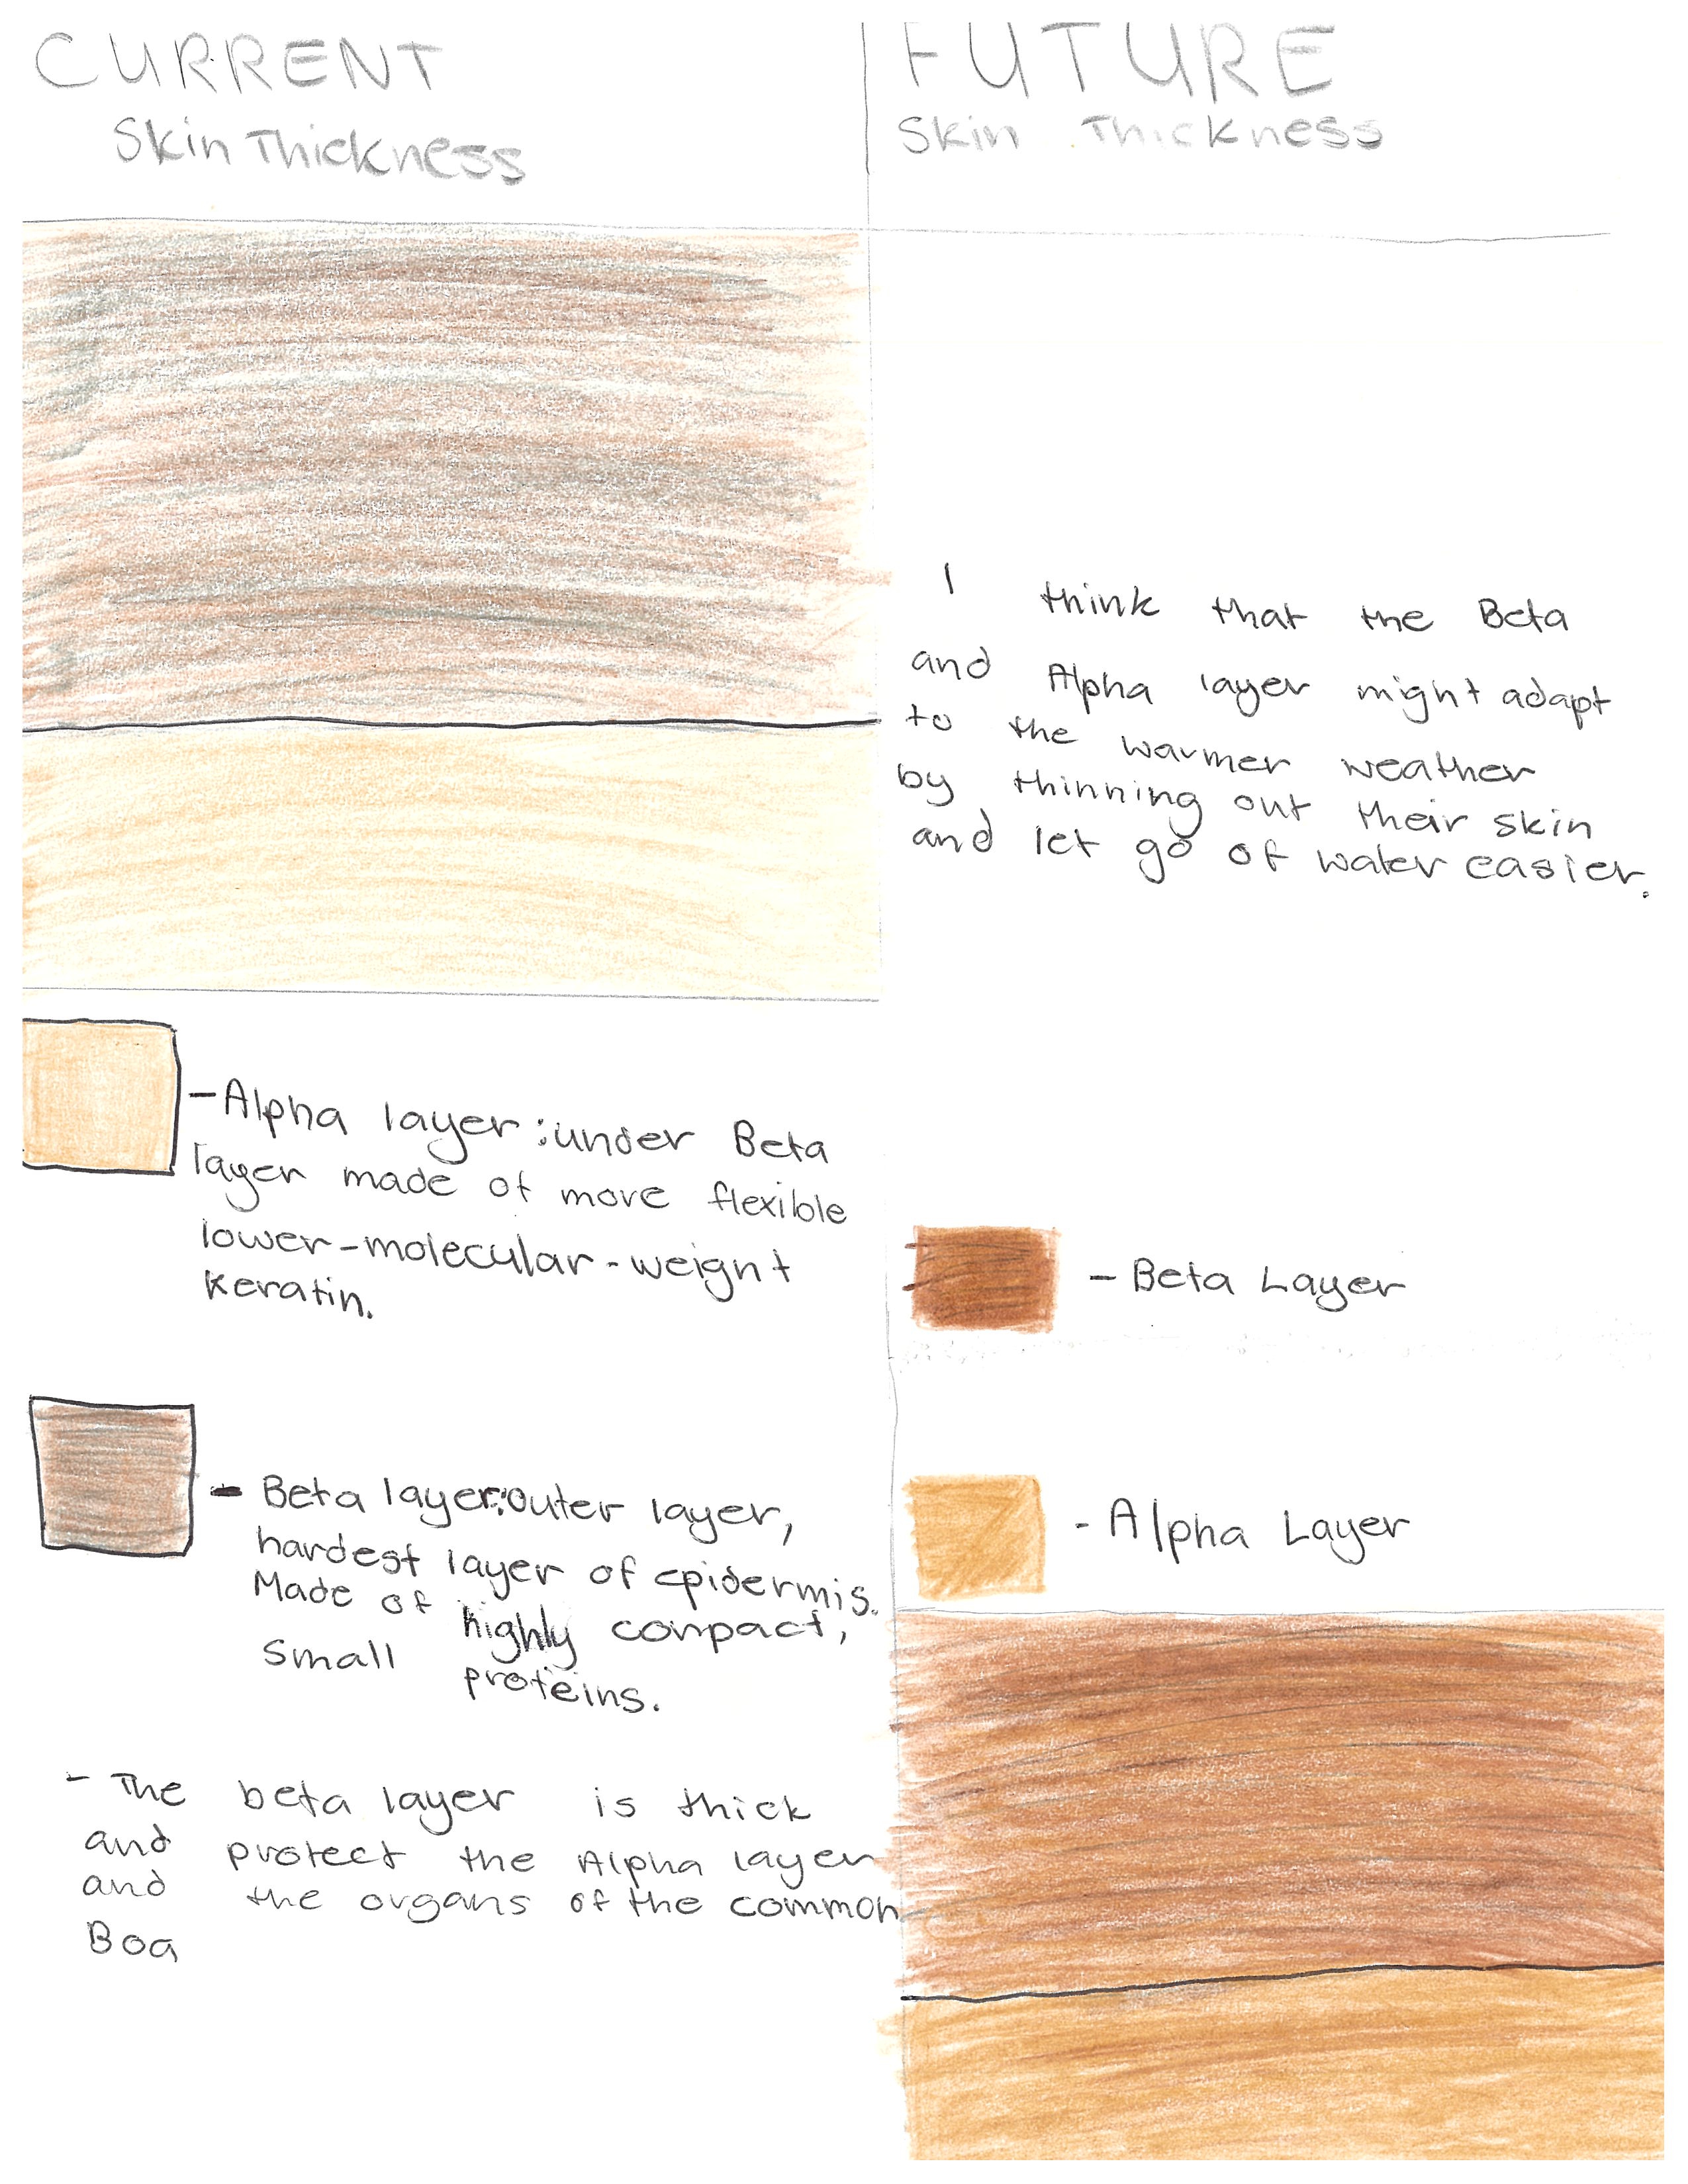 CURRENT
Skin Thickness
- Alpha layer: under Beta
layer made of more flexible
lower-molecular-weight
keratin.
- Beta layer: outer layer,
hardest layer of epidermis.
Made of highly compact,
small proteins.
- The beta layer is thick
and protect the Alpha layer
and the organs of the common
Boa
FUTURE
Skin Thickness
I think that the Beta
and Alpha layer might adapt
to the warmer weather
by thinning out their skin
and let go of water easier.
- Beta Layer
- Alpha Layer